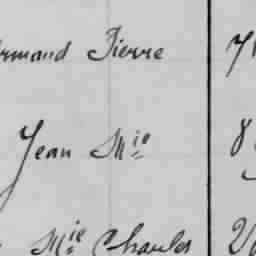 Armand Pierre 7
Jean Mie 8
Mie Charles 2